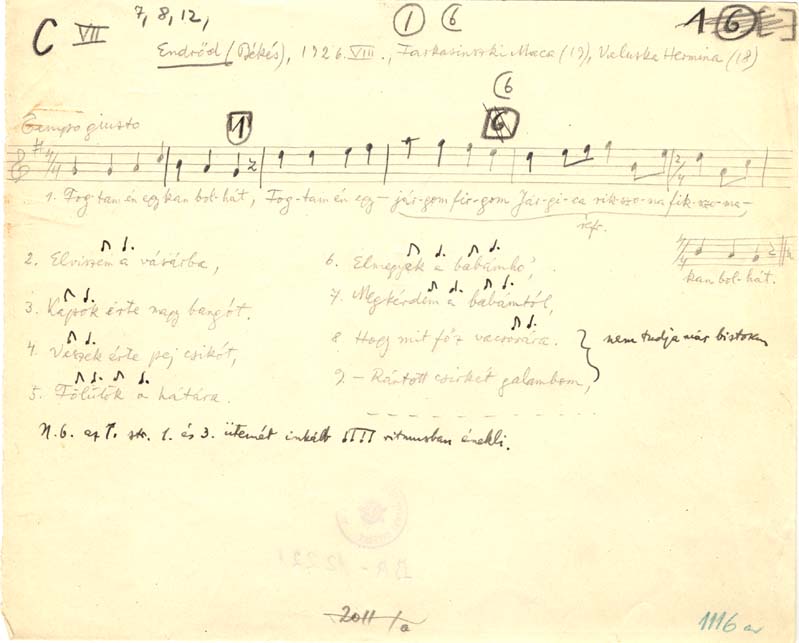 C VII 7, 8, 12, 1 6 A 6
Endrőd (Békés), 1926. VIII., Farkasinszki Maca (19), Valuska Hermina (18)
6
Tempo giusto 1 6
1. Fog-tam én egy kan bol-hát, Fog-tam én egy- jár-gom fir-gom Jár-gi-ca rik-szo-na fik-szo-na,
refr.
kan bol-hát.
2. Elviszem a vásárba,
3. Kapok érte nagy bangót.
4. Veszek érte pej csikót,
5. Fölülök a hátára.
6. Elmegyek a babámhó,
7. Megkérdem a babámtól,
8 Hogy mit főz vacsorára.
9. – Rántott csirkét galambom,
nem tudja már biztosan
N. 6. az 1. str. 1. és 3. ütemét inkább ritmusban énekli.
BA-12221
2011/a
1116 a